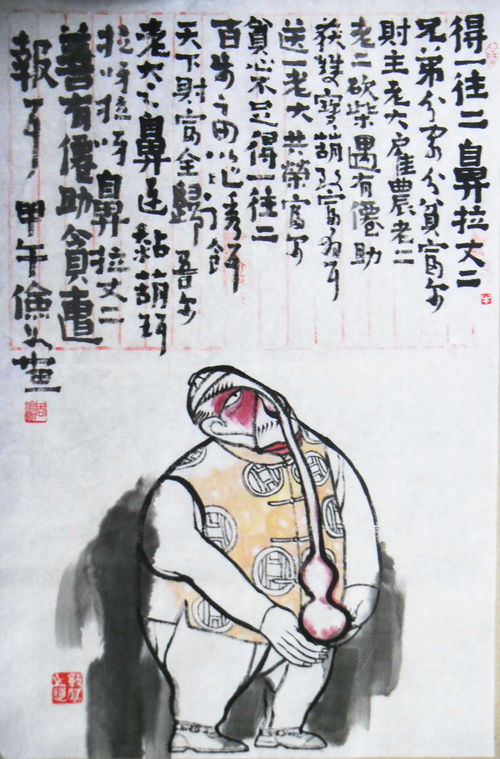 得一往二鼻拉丈二
兄弟分家分貧富尔
財主老大雇農老二
老二砍柴遇有僊助
雙寶葫富耳
送一老大共榮富尔
貪心不足得一往二
百
天下財富全歸吾尔
老大鼻粘葫
拉呀拉呀鼻拉丈二
善有僊助貪遭
報耳 甲午倫文畫